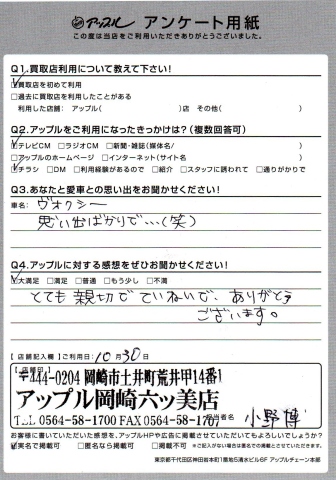 アップル アンケート用紙
この度は当店をご利用いただきありがとうございました。
Q1.買取店利用について教えて下さい!
☑買取店を初めて利用
□過去に買取店を利用したことがある
利用した店舗: アップル( )店 その他( )
Q2.アップルをご利用になったきっかけは?(複数回答可)
☑テレビCM □ラジオCM □新聞・雑誌(媒体名/ )
□アップルのホームページ □インターネット(サイト名 )
☑チラシ □DM □利用経験があるので □紹介 □スタッフに誘われて □通りがかりで
Q3.あなたと愛車との思い出をお聞かせください!
車名: ヴォクシー
思い出ばかりで…(笑)
Q4.アップルに対する感想をぜひお聞かせください!
☑大満足 □満足 □普通 □もう少し □不満
とても親切でていねいで、ありがとう
ございます。
【店舗記入欄】ご利用日: 10月30日
【店舗印】
〒444-0204 岡崎市土井町荒井甲14番1
アップル岡崎六ッ美店
TEL 0564-58-1700 FAX 0564-58-1701
担当者名 小野 博
お客様に書いていただいた感想を、アップルHPや広告に掲載させていただいてもよろしいでしょうか?
☑実名で掲載可 □匿名なら掲載可 □掲載不可 ※ご記入がない場合は匿名での掲載とさせていただきます。
東京都千代田区神田岩本町1番地5清水ビル6F アップルチェーン本部